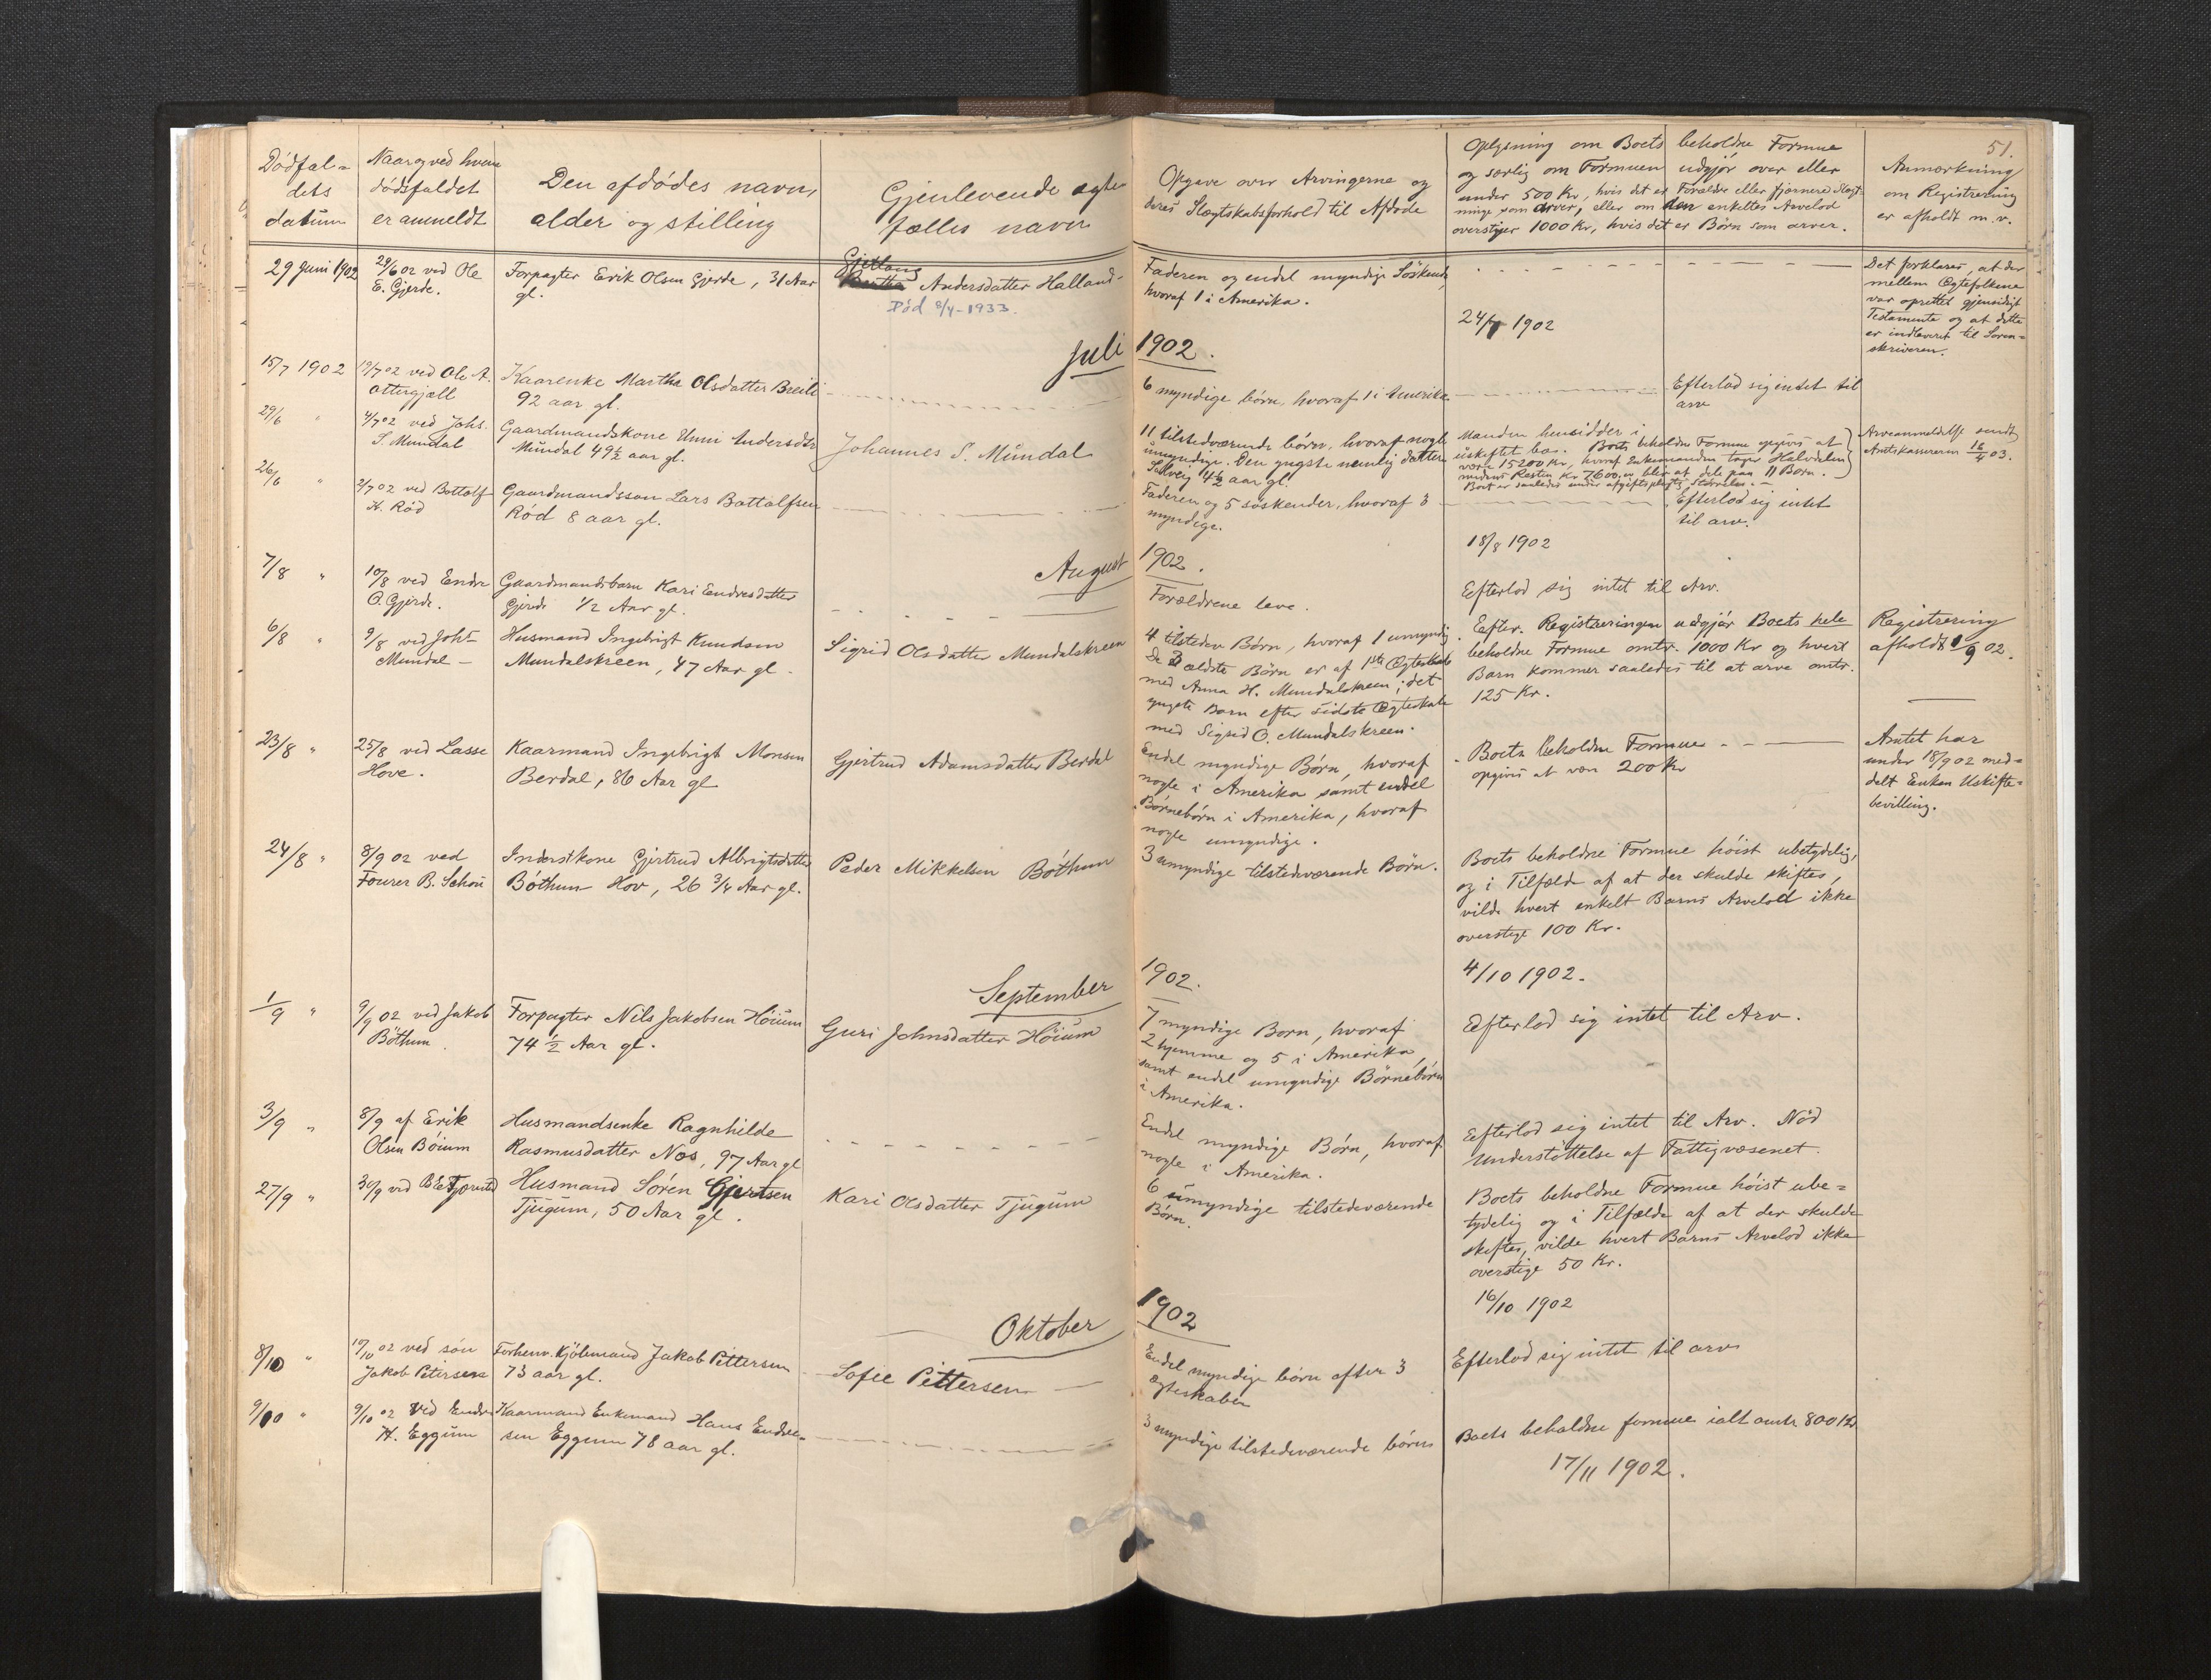 51.
Dödfal-
dets
datum
Naar og ved hvem
dödsfaldet
er anmeldt
Den afdödes navn,
alder og stilling
Gjenlevende ægte
fælles navn
Opgave over Arvingerne og
deres Slægtskabsforhold til Afdøde
Oplysning om Boets beholdne Formue
og særlig om Formuen udgjør over eller
under 500 Kr, hvis det er Forældre eller fjernere Slægt-
ninge som arver, eller om den enkeltes Arvelod
overstiger 1000 Kr, hvis det er Børn som arver.
Anmærkning
om Registrering
er afholdt m.v.
29 Juni 1902
29/6 02 ved Ole
E. Gjerde.
Forpagter Erik Olsen Gjerde, 31 Aar
gl.
Andersdatter Halland
Död 8/4-1933.
Faderen og endel myndige Söskende,
hvoraf 1 i Amerika.
24/7 1902
Det forklares, at der
mellem Ægtefolkene
var oprettet gjensidigt
Testamente og at dette
er indleveret til Soren-
skriveren.
Juli 1902.
15/7 1902
19/7 02 ved Ole A.
Ottergjell
Kaarenke Martha Olsdatter Breili
92 aar gl.
6 myndige börn, hvoraf 1 i Amerika
Efterlod sig intet til
arv
29/6 "
4/7 02 ved Johs.
S. Mundal
Gaardmandskone Unni Andersdtr
Mundal 49½ aar gl.
Johannes S. Mundal
11 tilstedværende börn, hvoraf nogle
umyndige. Den yngste nemlig datter
Solveig 4½ aar gl.
Manden hensidder i
uskiftet bo. Boets beholdne Formue opgives at
være 15200 Kr, hvoraf Enkemanden tager Halvdelen
medens Resten Kr 7600 blev at dele paa 11 Børn.
Boet er saaledes under afgiftspligtig Størrelse.
Arveanmeldelse sendt
Amtskassereren 16/4 03.
26/6 "
2/7 02 ved Bottolf
H. Röd
Gaardmandssön Lars Battolfsen
Röd 8 aar gl.
Faderen og 5 söskender, hvoraf 3
myndige.
Efterlod sig intet
til arv.
18/8 1902
August 1902.
7/8 "
10/8 ved Endre
O. Gjerde.
Gaardmandsbarn Kari Endresdatter
Gjerde ½ Aar gl.
Forældrene leve.
Efterlod sig intet til Arv.
6/8 "
9/8 ved Joh.
Mundal –
Husmand Ingebrigt Knudsen
Mundalskreen, 47 Aar gl.
Sigrid Olsdatter Mundalskreen
4 tilstedev. Børn, hvoraf 1 umyndig.
De 3 ældste Børn er af 1ste Ægteskab
med Anna H. Mundalskreen; det
yngste Barn efter sidste Ægteskab
med Sigrid O. Mundalskreen.
Efter Registreringen udgjør Boets hele
beholdne Formue omtr. 1000 Kr og hvert
Barn kommer saaledes til at arve omtr.
125 Kr.
Registrering
afholdt 1/9 02.
23/8 "
25/8 ved Lasse
Hove.
Kaarmand Ingebrigt Monsen
Berdal, 86 Aar gl
Gjertrud Adamsdatter Berdal
Endel myndige Børn, hvoraf
nogle i Amerika samt endel
Børnebörn i Amerika, hvoraf
nogle umyndige.
Boets beholdne Formue
opgives at være 200 Kr
Amtet har
under 18/9 02 med-
delt Enken Uskifte-
bevilling.
24/8 "
8/9 02 ved
Fourer B. Schou
Inderstkone Gjertrud Albrigtsdatter
Böthun Hov, 26 3/4 Aar gl.
Peder Mikkelsen Böthun
3 umyndige tilstedeværende Børn.
Boets beholdne Formue höist ubetydelig,
og i Tilfælde af at der skulde skiftes,
vilde hvert enkelt Barns Arvelod ikke
overstige 100 Kr.
4/10 1902.
September 1902.
1/9 "
9/9 02 ved Jakob
Böthum
Forpagter Nils Jakobsen Höium
74 ½ Aar gl.
Guri Johnsdatter Höium
7 myndige Born, hvoraf
2 hjemme og 5 i Amerika,
samt endel umyndige Börnebörn
i Amerika.
Efterlod sig intet til Arv.
3/9 "
8/9 af Erik
Olsen Böium
Husmandsenke Ragnhilde
Rasmusdatter Nos, 97 Aar gl
Endel myndige Børn, hvoraf
nogle i Amerika.
Efterlod sig intet til Arv. Nöd
Understöttelse af Fattigvæsenet.
27/9 "
30/9 ved
Husmand Sören Gjertsen
Tjugum, 50 Aar gl.
Kari Olsdatter Tjugum
6 umyndige tilstedeværende
Börn.
Boets beholdne Formue höist ube-
tydelig og i Tilfælde af at der skulde
skiftes, vilde hvert Barns Arvelod ikke
overstige 50 Kr.
16/10 1902
Oktober 1902
8/10 "
10/10 02 ved sön
Jakob Petersen
Forhenv. Kjöbmand Jakob Pettersen
73 aar gl.
Sofie Pettersen
Endel myndige börn efter 3
ægteskaber
Efterlod sig intet til arv
9/10 "
9/10 02 ved Endre
H. Eggum
Kaarmand Enkemand Hans Endre-
sen Eggum 78 aar gl.
3 myndige tilstedeværende börn
Boets beholdne formue ialt omtr. 800 Kr.
17/11 1902.